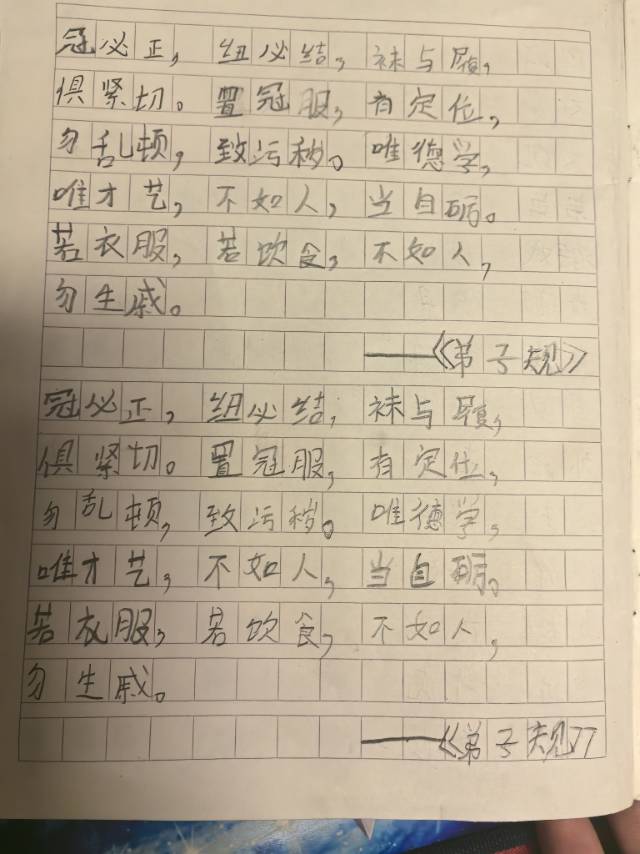 冠必正，纽必结，袜与履，
俱紧切。置冠服，有定位，
勿乱顿，致污秽。唯德学，
唯才艺，不如人，当自砺。
若衣服，若饮食，不如人，
勿生戚。
——《弟子规》
冠必正，纽必结，袜与履，
俱紧切。置冠服，有定位，
勿乱顿，致污秽。唯德学，
唯才艺，不如人，当自砺。
若衣服，若饮食，不如人，
勿生戚。
——《弟子规》